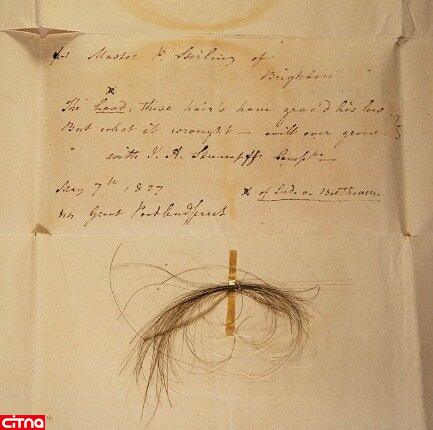 for Master P. Stirling of
Brighton
x
The head, these hair's have grac'd lies low
But what it wrought – will ever grow.
with J. A. Stumpff's Compts –
May 7th 1827
x of Lud. v. Beethoven.
Great Portland Street
citna